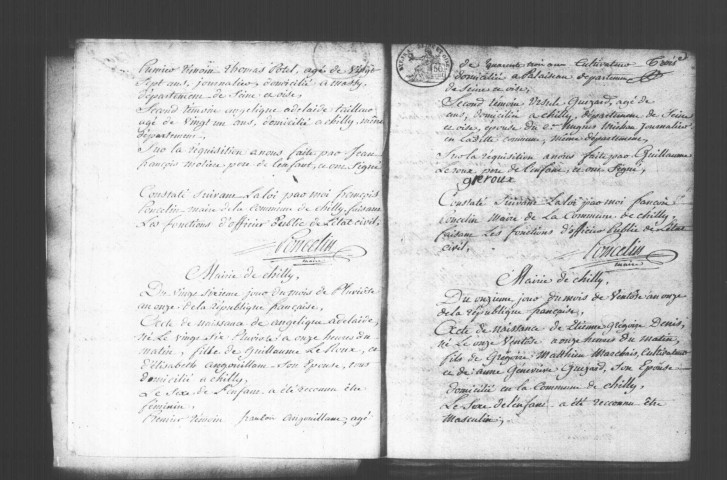 Premier témoin Thomas Potel, agé de vingt
sept ans, journalier, domicilié a massy,
département de Seine et oise,
Second témoin angelique adelaide
agé de vingt un ans, domicilié a chilly, même
département.
Sur la réquisition anous faite par Jean
françois moline, pere de l'enfant, et ont Signé
Constaté Suivant La loi par moi françois
Poncelin, maire de la Commune de chilly, faisant
Les fonctions d'officier Public de L'état civil,
Poncelin
maire
Mairie de chilly,
Du vingt Sixieme jour du mois de Pluviôse
an onze de la république française,
Acte de naissance de angelique adelaide,
né Le vingt Six Pluviose a onze heures du
matin, fille de Guillaume Le Roux, et
d'élisabeth angouillam, Son Epouse, tous
domicilié a chilly,
Le Sexe de L'enfant a été reconnu être
féminin,
Premier témoin antoin angouillam, agé
de quarante trois ans Cultivateur
domicilié a Palaiseau département
de Seine et oise,
Second témoin Ursule Guezard, agé de
ans, domicilié a chilly, département de Seine
et oise, épouse du Cn hugues michau journalier
en Ladite commune, même département,
Sur La réquisition anous faite par Guillaume
Le roux, pere de L'enfant, et ont Signé,
g le roux
Constaté Suivant La loi par moi françois
Poncelin maire de La Commune de chilly,
faisant Les fonctions d'officier Public de L'état
civil,
Poncelin
maire
Mairie de chilly,
Du onzieme jour du mois de Ventôse an onze
de la république française,
Acte de naissance de Etienne Grégoire Denis,
né Le onze Ventôse a onze heures du matin,
fils de Grégoire Mathieu Marchais, Cultivateur
et de anne Genevieve Guezard, Son Epouse
domicilié en la Commune de chilly,
Le Sexe de L'enfant a été reconnu être
Masculin,